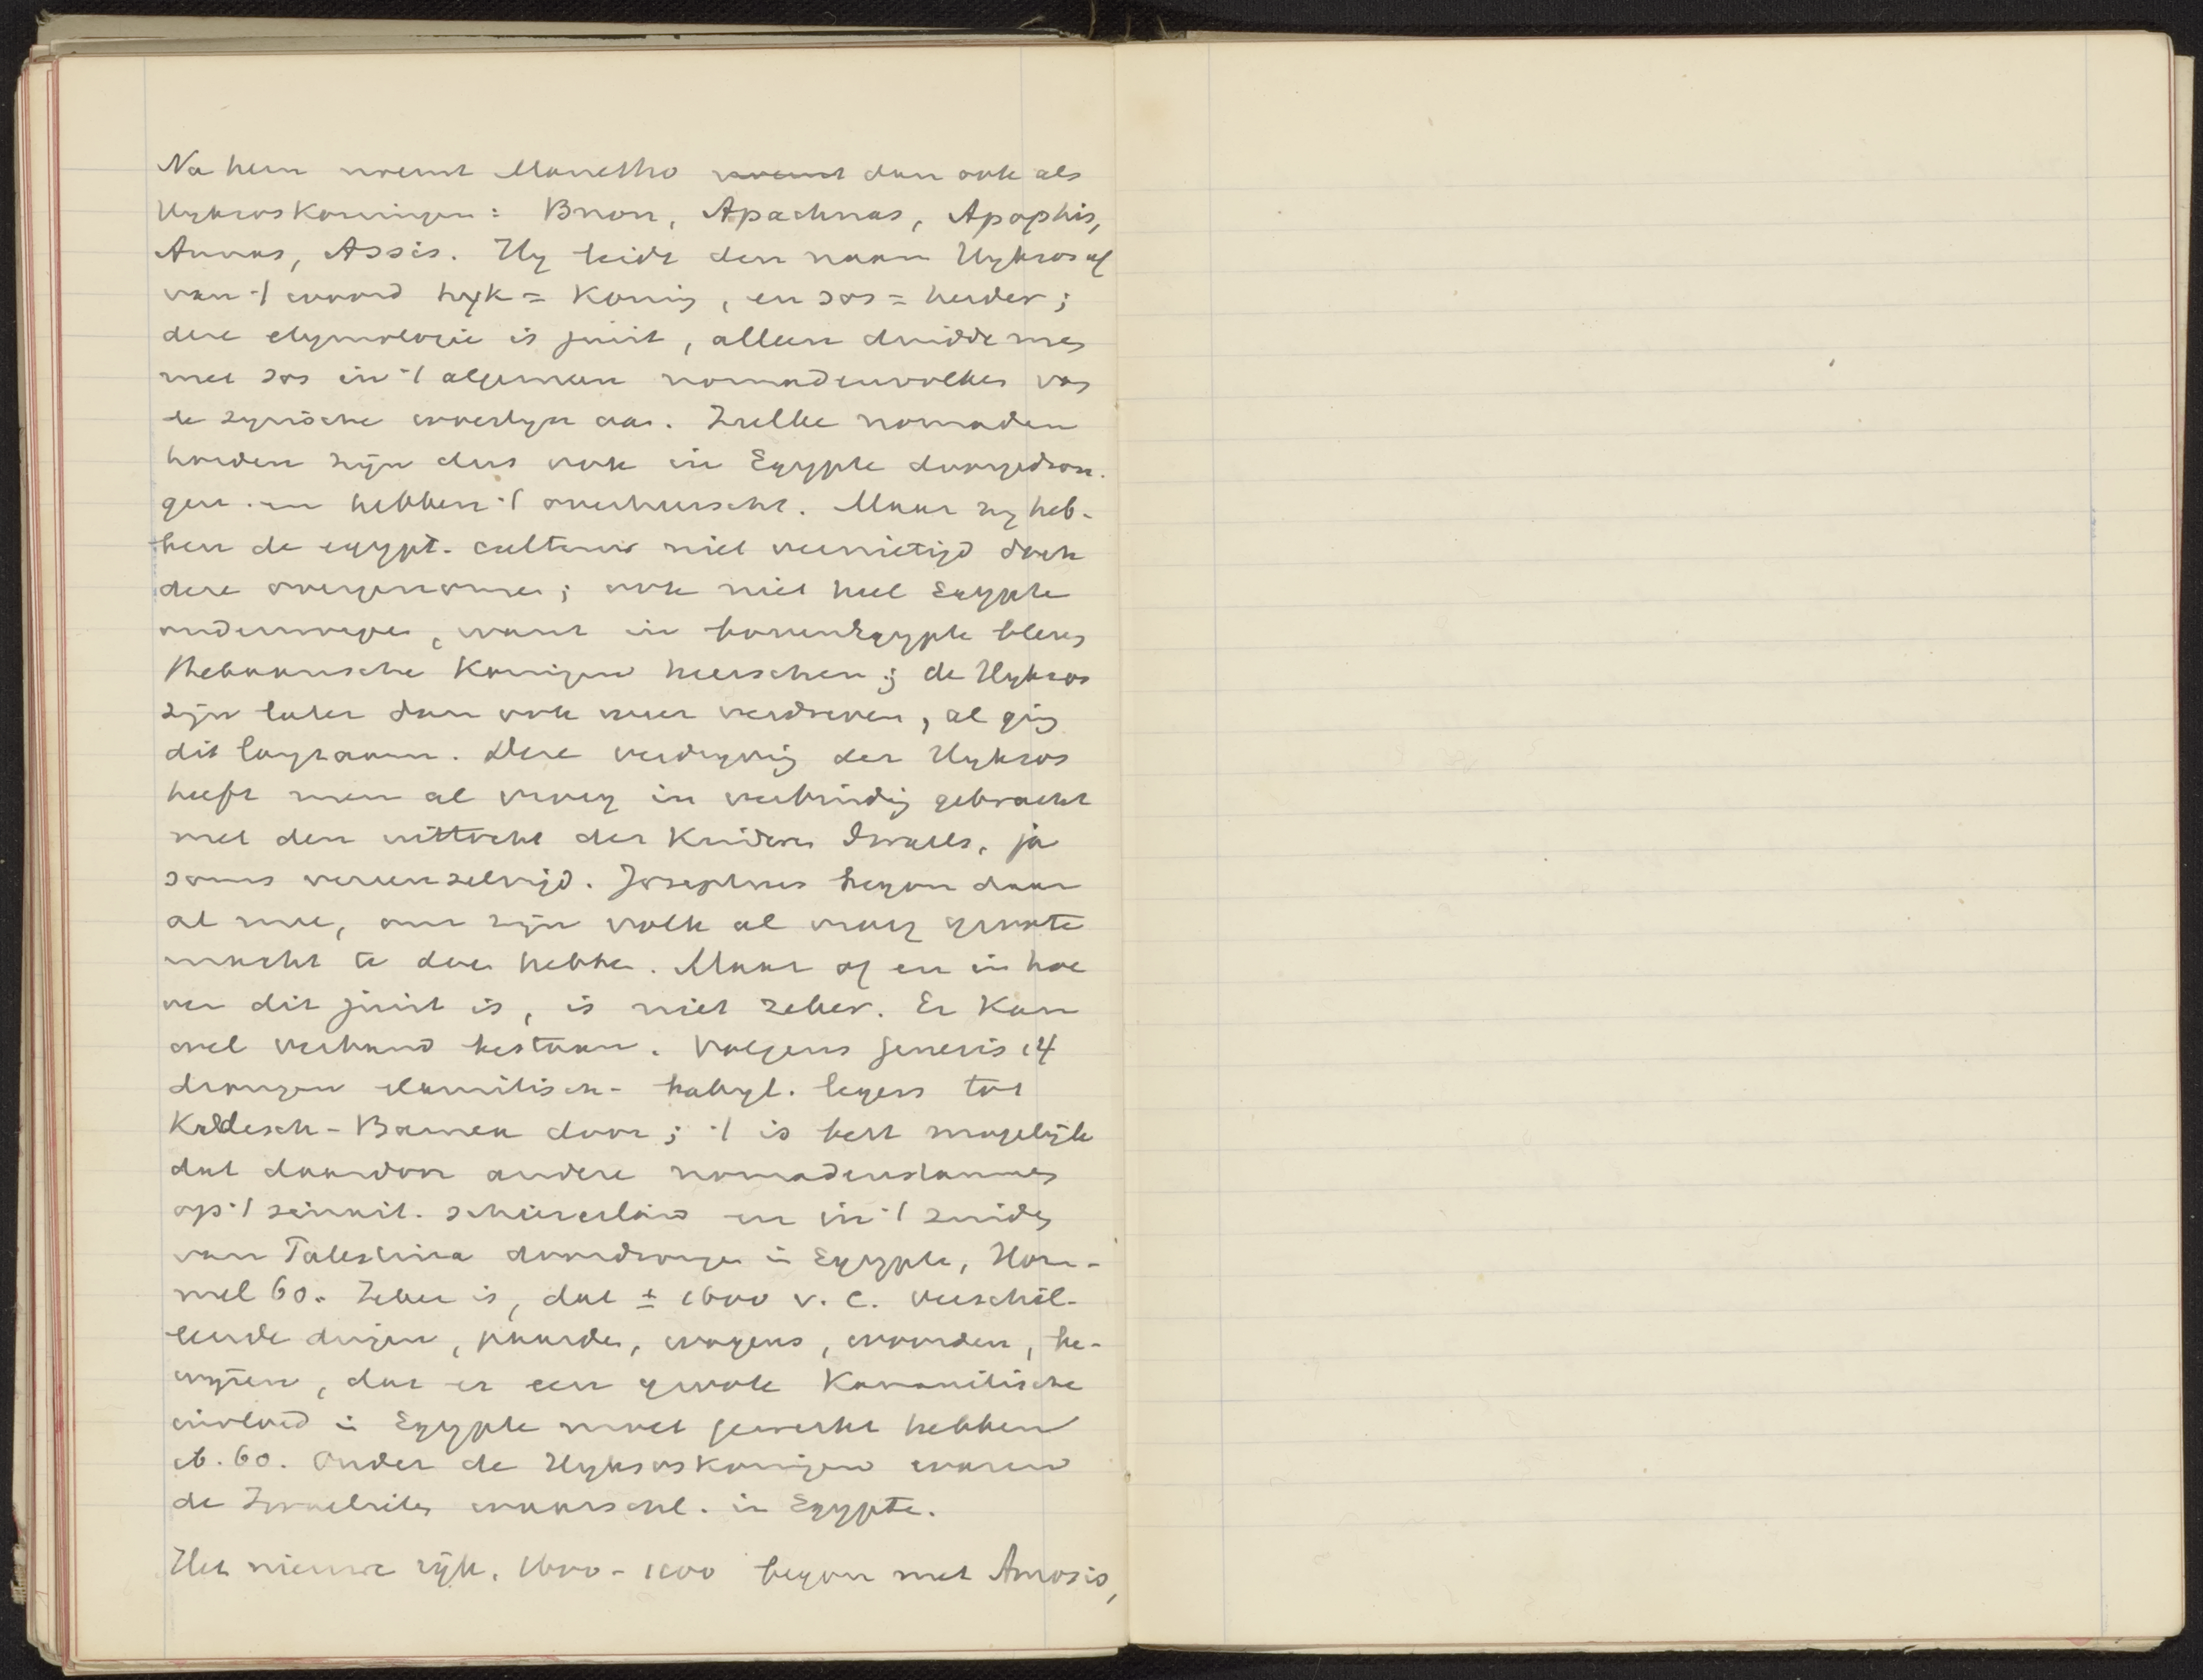 Na hem noemt Manetho noemt dan ook als
Hyksoskoningen: Bnon, Apachnas, Apophis,
Annas, Assis. Hy leidt den naam Hyksos af
van 't woord hyk = Koning, en sos = herder;
deze etymologie is juist, alleen duidde men
met sos in 't algemeen nomadenvolken van
de syrische woestyn aan. Zulke nomaden
horden zijn dus ook in Egypte doorgedron-
gen en hebben 't overheerscht. Maar zy heb-
ben de egypt. cultuur niet vernietigd doch
deze overgenomen; ook niet heel Egypte
onderworpen, want in boven Egypte bleven
Thebaansche Koningen heerschen; de Hyksos
zijn later dan ook weer verdreven, al ging
dit langzaam. Deze verdryving der Hyksos
heeft men al vroeg in verbinding gebracht
met den uittocht der Kinderen Israels, ja
soms vereenzelvigd. Josephus begon daar
al mee, om zijn volk al vroeg groote
macht te doen hebben. Maar of en in hoe
ver dit juist is, is niet zeker. Er kan
wel verband bestaan. Volgens Genesis 14
drongen elamitisch-babyl. legers tot
Kadesch-Barnea door; 't is best mogelijk
dat daardoor andere nomadenstammen
op 't sinait. schiereiland en in 't zuiden
van Palestina doordrongen in Egypte, Hom-
mel 60. Zeker is, dat ± 1600 v. C. verschil-
lende dingen, paarden, wagens, woorden, be-
wyzen, dat er een groote Kanaanitische
invloed in Egypte moet gewerkt hebben
ib. 60. Onder de Hyksoskoningen waren
de Israelieten waarschl. in Egypte.
Het nieuwe rijk, 1600-1100 begon met Amosis,